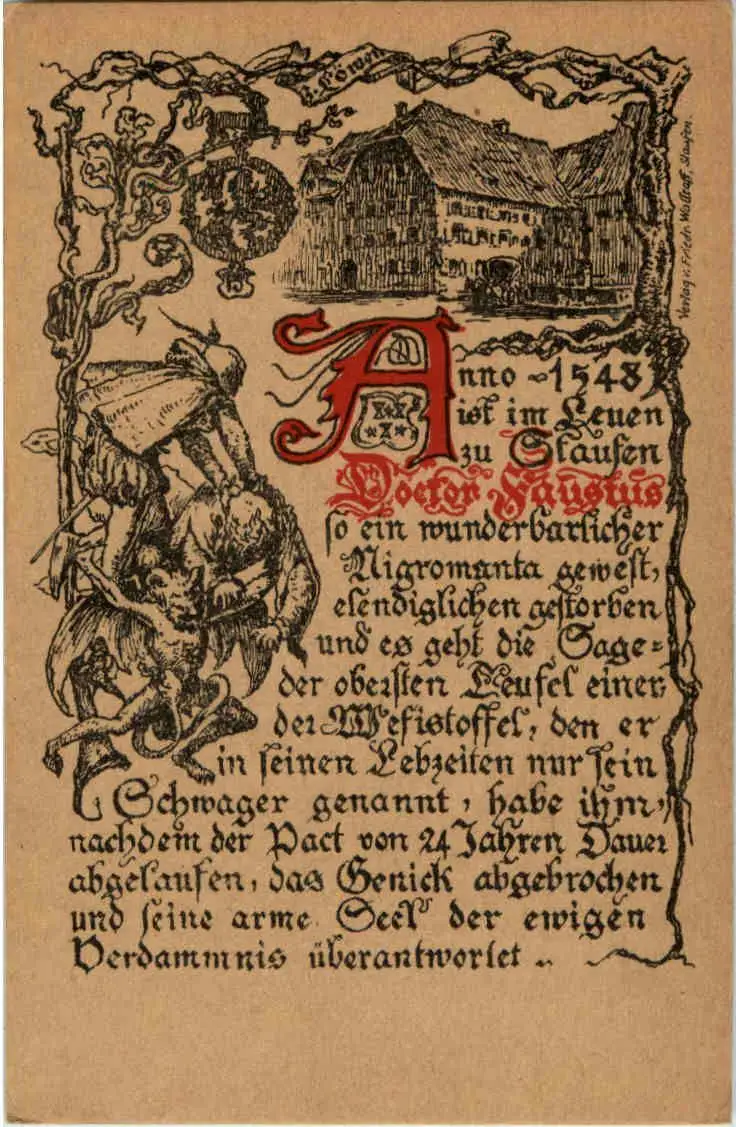 z. Löwen
Verlag v. Friedr. Wolfraff, Staufen.
Anno 1548
ist im Leuen
zu Staufen
Doctor Faustus
so ein wunderbarlicher
Nigromanta gewest,
elendiglichen gestorben
und es geht die Sage
der obersten Teufel einer
der Mefistoffel, den er
in seinen Lebzeiten nur sein
Schwager genannt, habe ihm,
nachdem der Pact von 24 Jahren Dauer
abgelaufen, das Genick abgebrochen
und seine arme Seel der ewigen
Verdammnis überantwortet ..